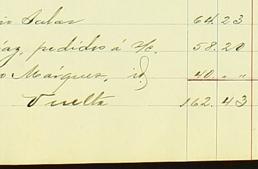 Salas 64.23
pedidos á 58.20
Márquez, id 40. " "
Vuelta 162.43